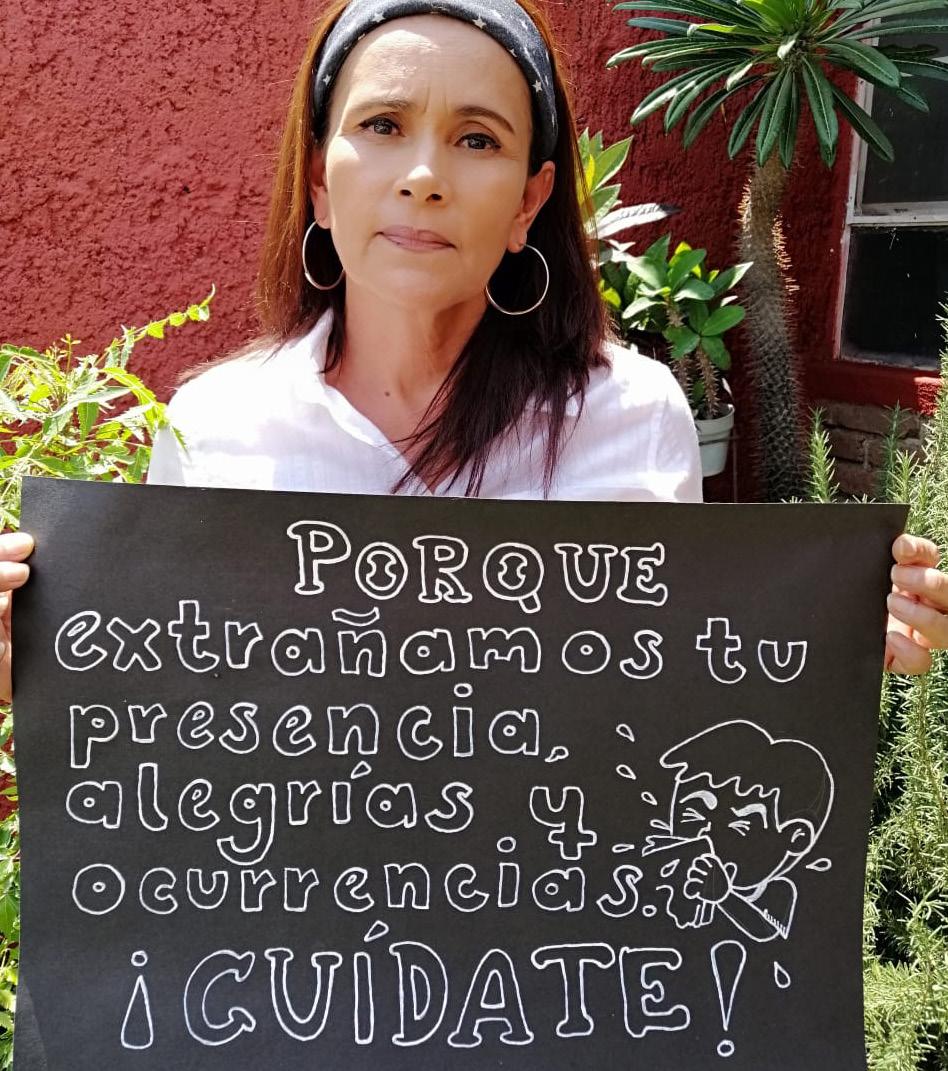 PORQUE
extrañamos tu
presencia,
alegrías y
ocurrencias.
¡CUÍDATE!